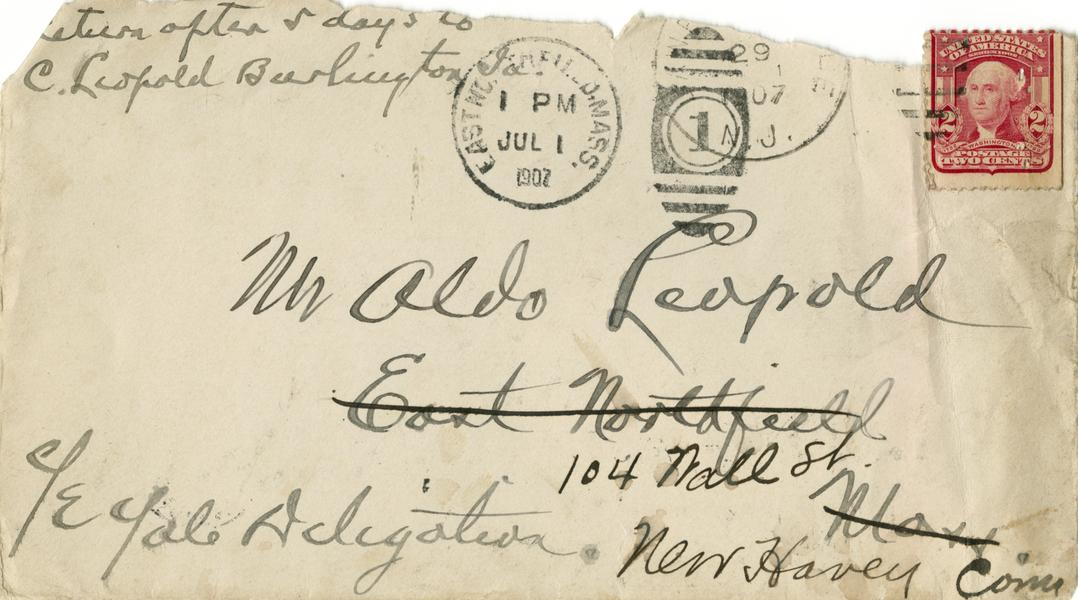 Return after 5 days to
C. Leopold Burlington Ia.
EAST NORTHFIELD, MASS.
1 PM
JUL 1
1907
29
1
1907
N.J.
1
UNITED STATES
OF AMERICA
2 2
WASHINGTON
POSTAGE
TWO CENTS
Mr Aldo Leopold
East Northfield
104 Wall St.
Mass
c/o Yale Deligation.
New Haven Conn